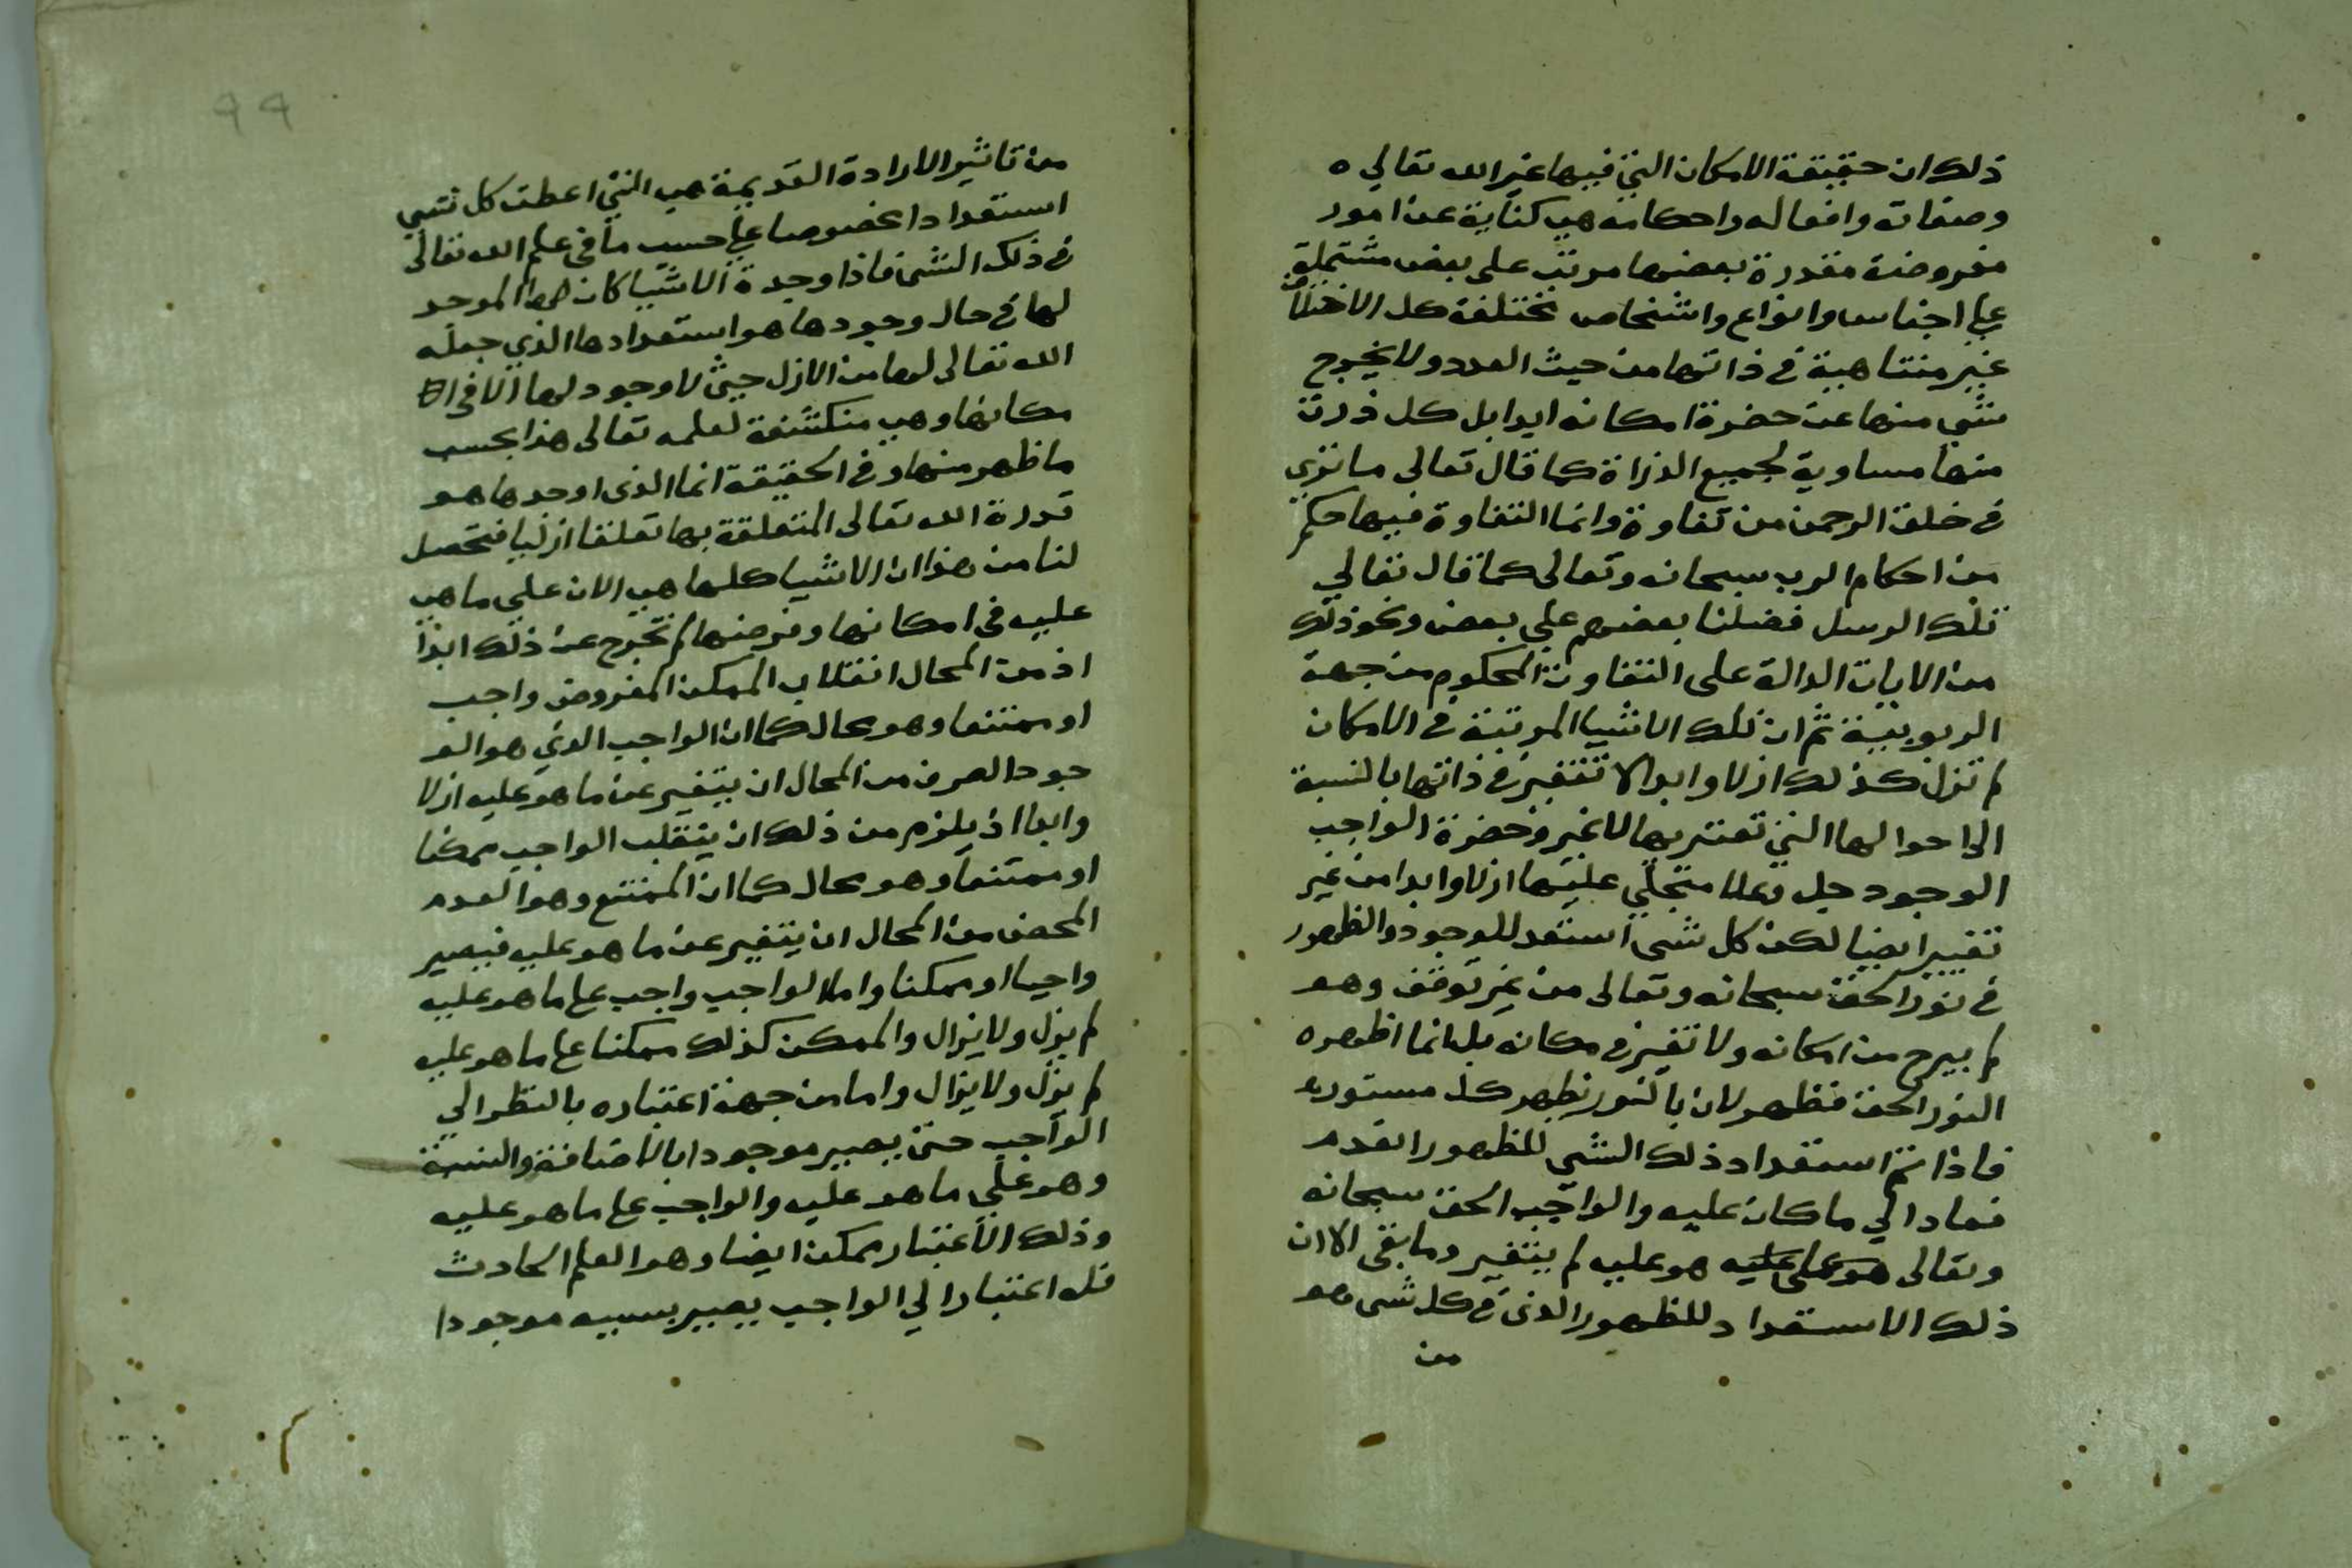 ذلك ان حقيقة الامكان التي فيها غير الله تعالي ه
وصفاته وافعاله واحكامه هي كناية عن امور
مفروضة مقدرة بعضها مرتب على بعض مشتملة
علي اجناس وانواع واشخاص مختلفة كل الاختلاف
غير متناهية في ذاتها من حيث العدد ولا يخرج
شي منها عن حضرة امكانه ابدا بل كل ذرة
منها مساوية لجميع الذراة كما قال تعالى ما تري
في خلق الرحمن من تفاوة وانما التفاوة فيها حكم
من احكام الرب سبحانه وتعالى كما قال تعالي
تلك الرسل فضلنا بعضهم علي بعض ونحو ذلك
من الايات الدالة على التفاوت المحكوم من جهة
الربوبية ثم ان تلك الاشيا المرتبة في الامكان
لم تزل كذلك ازلا وابدا لا تتغير في ذاتها بالنسبة
الى احوالها التي تعتريها لا غير وحضرة الواجب
الوجود جل وعلا متجلي عليها ازلا وابدا من غير
تغيير ايضا لكن كل شي استعد للوجود والظهور
في نور الحق سبحانه وتعالى من غير توقف وهو
لم يبرح من امكانه ولا تغير في مكانه بل انما اظهره
النور الحق فظهر لان بالنور يظهر كل مستور
فاذا تم استعداد ذلك الشي للظهور انعدم
فعاد الي ما كان عليه والواجب الحق سبحانه
وتعالى هو على عليه هو عليه لم يتغير وما بقى الا ان
ذلك الاستعداد للظهور الذي في كل شي هو
من
99
من تاثير الارادة القديمة هي التي اعطت كل شي
استعدادا مخصوصا علي حسب ما في علم الله تعالى
في ذلك الشي فاذا وجدة الاشيا كان الموجد
لها في حال وجودها هو استعدادها الذي جعله
الله تعالى لها من الازل حيث لا وجود لها الا في ا
مكانها وهي منكشفة لعلمه تعالى هذا بحسب
ما ظهر منها وفي الحقيقة انما الذي اوجدها هو
قدرة الله تعالى المتعلقة بها تعلقا ازليا فتحصل
لنا من هذا ان الاشيا كلها هي الان علي ما هي
عليه في امكانها وفرضها لم تخرج عن ذلك ابدا
اذ من المحال انقلاب الممكن المفروض واجب
او ممتنعا وهو محال كما ان الواجب الذي هو الو
جود الصرف من المحال ان يتغير عن ما هو عليه ازلا
وابدا اذ يلزم من ذلك ان ينقلب الواجب ممكنا
او ممتنعا وهو محال كما ان الممتنع وهو العدم
المحض من المحال ان يتغير عن ما هو عليه فيصير
واجبا او ممكنا واما الواجب واجب على ما هو عليه
لم يزل ولا يزال والممكن كذلك ممكنا على ما هو عليه
لم يزل ولا يزال واما من جهة اعتباره بالنظر الي
الواجب حتى يصير موجودا بالاضافة والنسبة
وهو علي ما هو عليه والواجب على ما هو عليه
وذلك الاعتبار ممكن ايضا وهو العلم الحادث
فله اعتبارا الي الواجب يصير بسببه موجودا